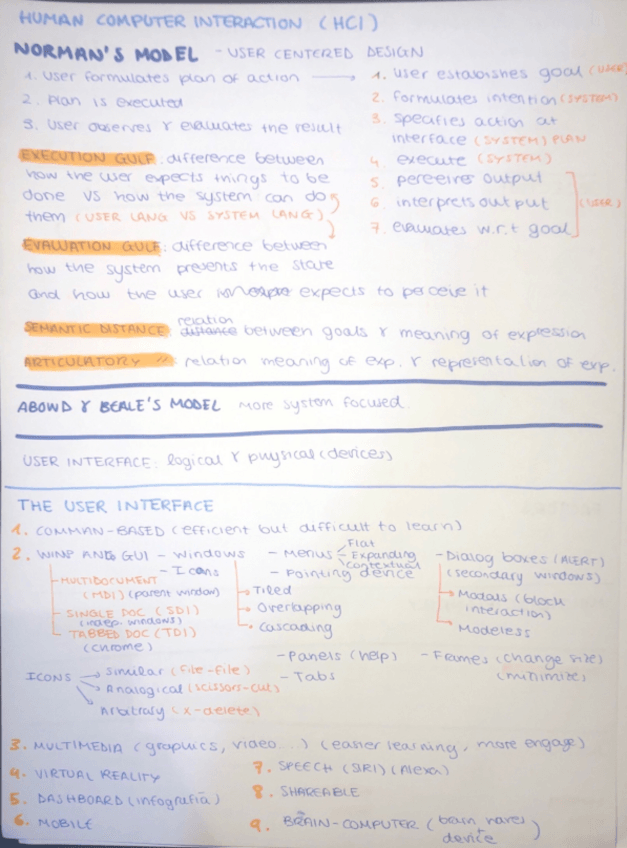 HUMAN COMPUTER INTERACTION (HCI)
NORMAN'S MODEL - USER CENTERED DESIGN
1. User formulates plan of action
2. Plan is executed
3. User observes & evaluates the result
1. user establishes goal (USER)
2. formulates intention (SYSTEM)
3. specifies action at
interface (SYSTEM) PLAN
4. execute (SYSTEM)
5. perceives output
6. interprets output
7. evaluates w.r.t goal
(USER)
EXECUTION GULF: difference between
how the user expects things to be
done VS how the system can do
them (USER LANG VS SYSTEM LANG)
EVALUATION GULF: difference between
how the system presents the state
and how the user expects to perceive it
SEMANTIC DISTANCE relation distance between goals & meaning of expression
ARTICULATORY " : relation meaning of exp. & representation of exp.
ABOWD & BEALE'S MODEL More system focused.
USER INTERFACE: logical & physical (devices)
THE USER INTERFACE
1. COMMAN-BASED (efficient but difficult to learn)
2. WIMP AND GUI - Windows
- Icons
- MULTIDOCUMENT
(MDI) (parent window)
- SINGLE DOC (SDI)
(indep. windows)
- TABBED DOC (TDI)
(chrome)
Tiled
Overlapping
Cascading
- Menus
Flat
Expanding
contextual
- Pointing device
- Dialog boxes (ALERT)
(secondary windows)
Modals (block
interaction)
Modeless
- Panels (help)
- Tabs
- Frames (change size)
(minimize)
ICONS
Similar (file-file)
Analogical (scissors-cut)
Arbitrary (x-delete)
3. MULTIMEDIA (graphics, video...) (easier learning, more engage)
4. VIRTUAL REALITY
5. DASHBOARD (infografía)
6. MOBILE
7. SPEECH (SIRI) (Alexa)
8. SHAREABLE
9. BRAIN-COMPUTER (brain waves
+
device)